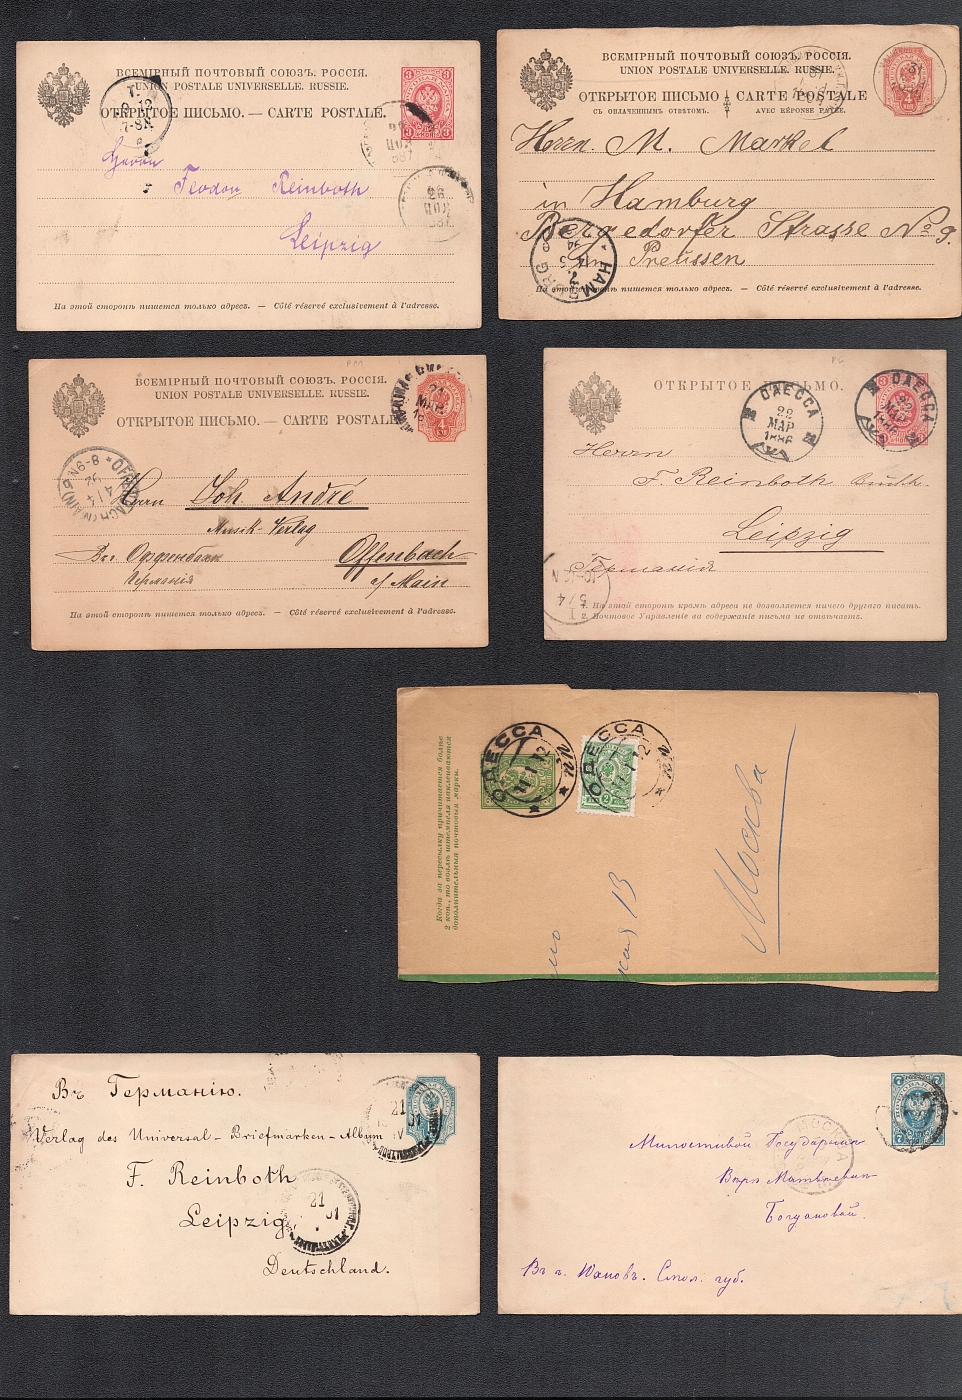 ВСЕМІРНЫЙ ПОЧТОВЫЙ СОЮЗЪ. РОССІЯ.
UNION POSTALE UNIVERSELLE. RUSSIE.
ОТКРЫТОЕ ПИСЬМО. — CARTE POSTALE.
7-8N
26
НОЯ
887
26
НОЯ
887
Herrn
Feodor Reinboth
Leipzig
На этой сторонѣ пишется только адресъ. — Côté réservé exclusivement à l'adresse.
ВСЕМІРНЫЙ ПОЧТОВЫЙ СОЮЗЪ. РОССІЯ.
UNION POSTALE UNIVERSELLE. RUSSIE.
ОТКРЫТОЕ ПИСЬМО CARTE POSTALE
СЪ ОПЛАЧЕННЫМЪ ОТВѢТОМЪ. AVEC RÉPONSE PAYÉE.
Herrn M. Markel
in Hamburg
Bergedorfer Strasse No 9.
in Preussen
HAMBURG
На этой сторонѣ пишется только адресъ. — Côté réservé exclusivement à l'adresse.
ВСЕМІРНЫЙ ПОЧТОВЫЙ СОЮЗЪ. РОССІЯ.
UNION POSTALE UNIVERSELLE. RUSSIE.
ОТКРЫТОЕ ПИСЬМО. — CARTE POSTALE.
21
МАР
OFFENBACH (MAIN)
4/4
92
8-9N
Herrn Joh. André
Musik-Verlag
Въ Оффенбахъ Offenbach
Германія a/Main
На этой сторонѣ пишется только адресъ. — Côté réservé exclusivement à l'adresse.
ОТКРЫТОЕ ПИСЬМО.
ОДЕССА
22
МАР
1886
ОДЕССА
22
МАР
1886
Herrn
F. Reinboth
Leipzig
Германія
5/4
1. На этой сторонѣ кромѣ адреса не дозволяется ничего другаго писать.
2. Почтовое Управленіе за содержаніе письма не отвѣчаетъ.
Когда за пересылку причитается болѣе
2 коп., то возлѣ штемпеля наклеиваются
дополнительныя почтовыя марки.
ОДЕССА
11 1 12
ОДЕССА
11 1 12
Москва
Въ Германію.
Verlag des Universal-Briefmarken-Album
F. Reinboth
Leipzig
Deutschland.
21
01
21
01
МОСКВА
Милостивой Государынѣ
Вѣрѣ Матвѣевнѣ
Богдановой.
Въ г. Юхновъ. Смол. губ.